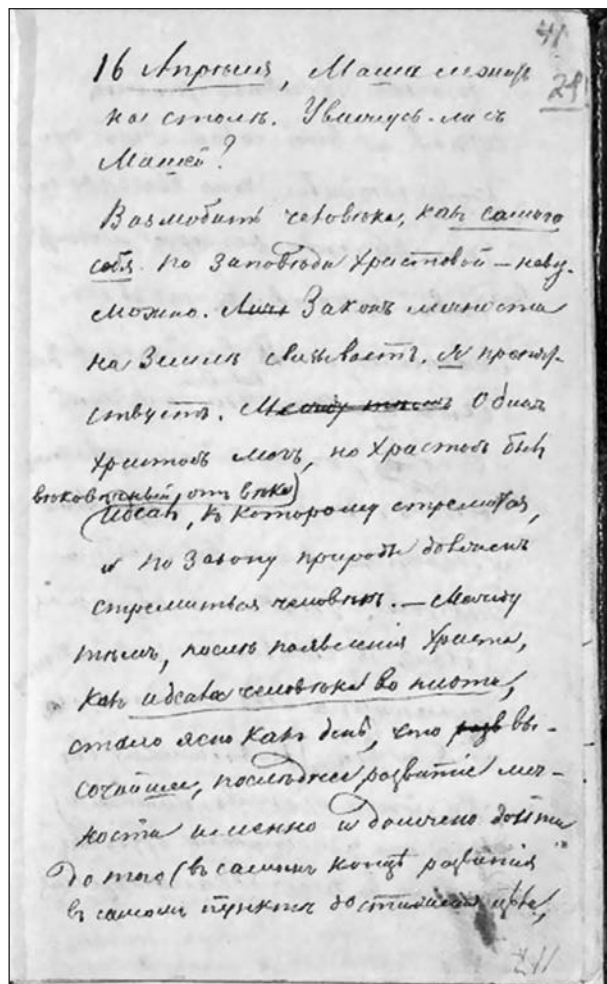 41
29
16 Апрѣля, Маша лежитъ
на столѣ. Увижусь-ли съ
Машей?
Возлюбить человѣка, какъ самого
себя по Заповѣди Христовой – невоз-
можно. Личн Законъ личности
на Землѣ связываетъ. Я препят-
ствуетъ. Между тѣмъ Одинъ
Христосъ могъ, но Христосъ былъ
вѣковѣчный отъ вѣка
идеалъ, къ которому стремится,
и по Закону природы долженъ
стремиться человѣкъ. – Между
тѣмъ, послѣ появленія Христа,
какъ идеала человѣка во плоти,
стало ясно какъ день, что разв вы-
сочайшее, послѣднее развитіе лич-
ности именно и должно дойти
до того (въ самомъ концѣ развитія
въ самомъ пунктѣ достиженія цѣли,
211